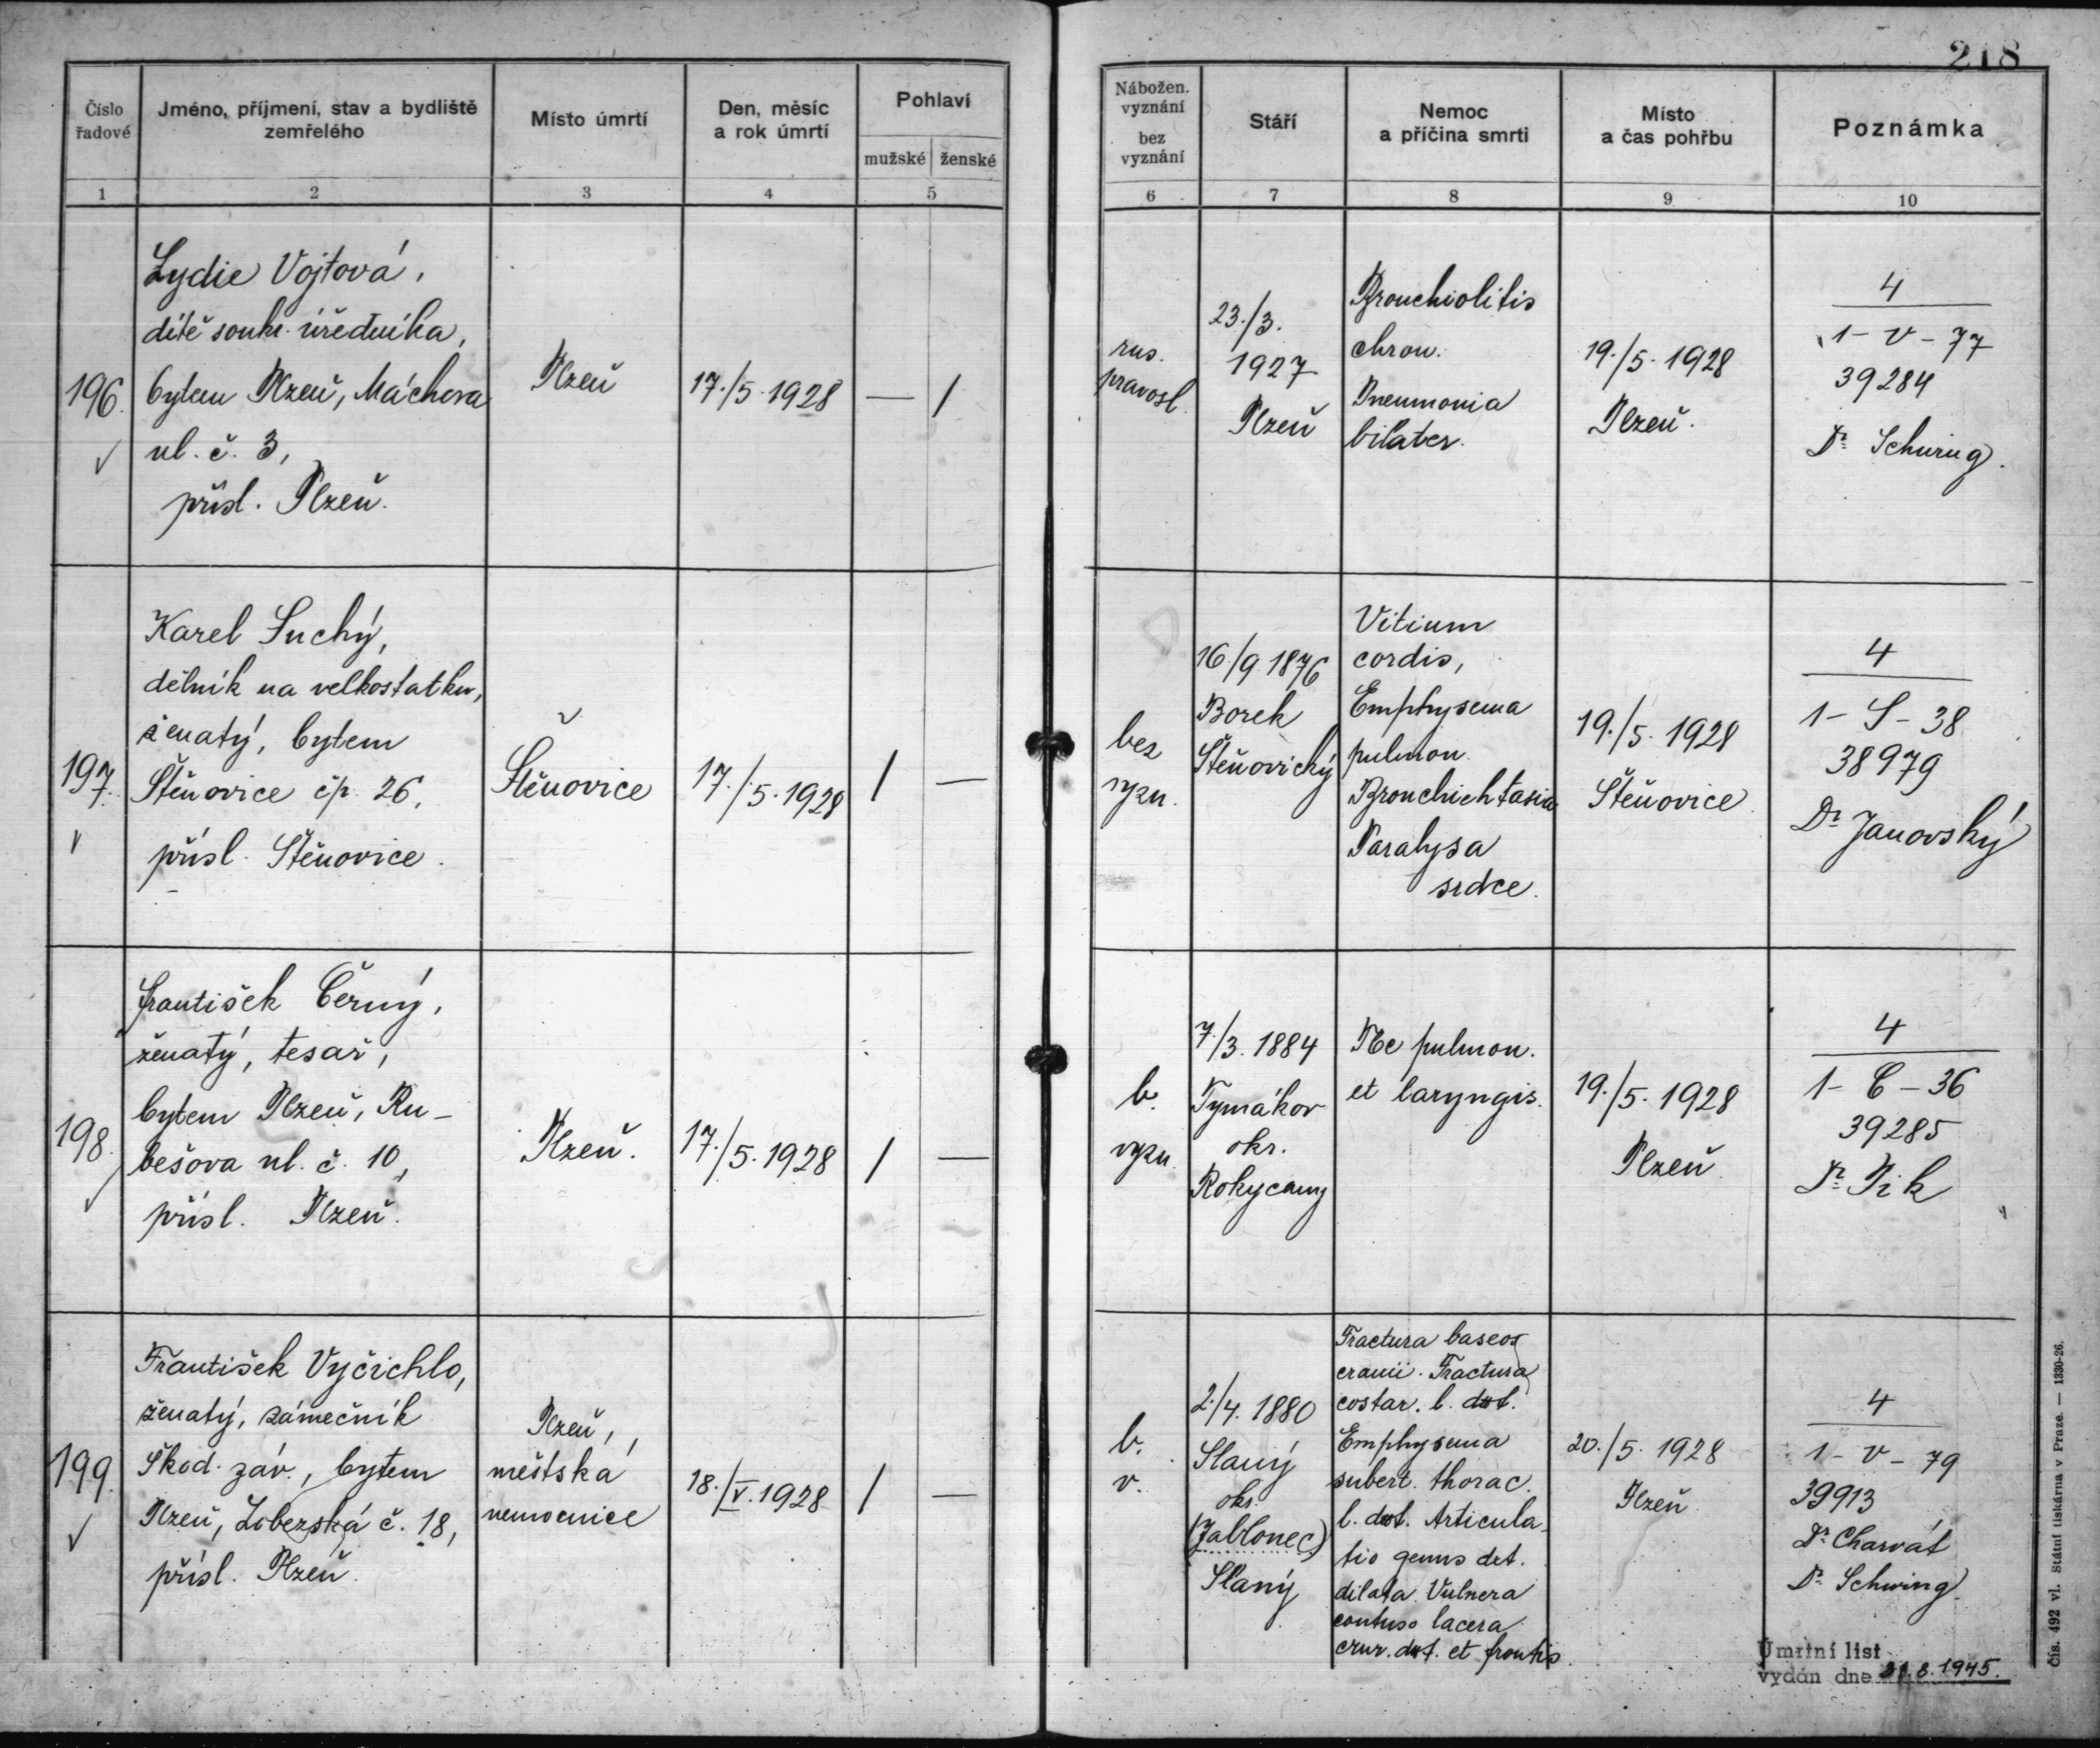 218
Číslo řadové
Jméno, příjmení, stav a bydliště
zemřelého
Místo úmrtí
Den, měsíc
a rok úmrtí
Pohlaví
mužské ženské
Nábožen.
vyznání
bez
vyznání
Stáří
Nemoc
a příčina smrti
Místo
a čas pohřbu
Poznámka
1 2 3 4 5 6 7 8 9 10
196.
Lydie Vojtová,
dítě soukr. úředníka,
bytem Plzeň, Máchova
ul. č. 3,
přísl. Plzeň.
Plzeň
17./5. 1928
— /
rus.
pravosl.
23./3.
1927
Plzeň
Bronchiolitis
chron.
Pneumonia
bilater.
19./5. 1928
Plzeň.
4
1 - V - 77
39284
Dr Schwing.
197.
Karel Suchý,
dělník na velkostatku,
ženatý, bytem
Štěnovice čp. 26,
přísl. Štěnovice.
Štěnovice
17./5. 1928
/ —
bez
vyzn.
16./9. 1876
Borek
Štěnovický
Vitium
cordis,
Emphysema
pulmon.
Bronchiehtasia
Paralysa
srdce.
19./5. 1928
Štěnovice
4
1 - S - 38
38979
Dr Janovský
198.
František Černý,
ženatý, tesař,
bytem Plzeň, Ru-
bešova ul. č. 10,
přísl. Plzeň.
Plzeň.
17./5. 1928
/ —
b.
vyzn.
7./3. 1884
Tymákov
okr.
Rokycany
Tbc pulmon.
et laryngis.
19./5. 1928
Plzeň
4
1 - Č - 36
39285
Dr Pik
199.
František Vyčichlo,
ženatý, zámečník
Škod. záv., bytem
Plzeň, Lobezská č. 18,
přísl. Plzeň.
Plzeň,
městská
nemocnice
18./V. 1928
/ —
b.
v.
2./4. 1880
Slaný
okr.
(Jablonec)
Slaný
Fractura baseos
cranii. Fractura
costar. l. dxt.
Emphysema
subert. thorac.
l. dxt. Articula-
tio genus dxt.
dilata. Vulnera
contuso lacera
crur. dxt. et frontis.
20./5. 1928
Plzeň
4
1 - V - 79
39913
Dr Charvát
Dr Schwing.
Úmrtní list
vydán dne 21.8.1945.
Čís. 492 vl. Státní tiskárna v Praze. — 1330-26.